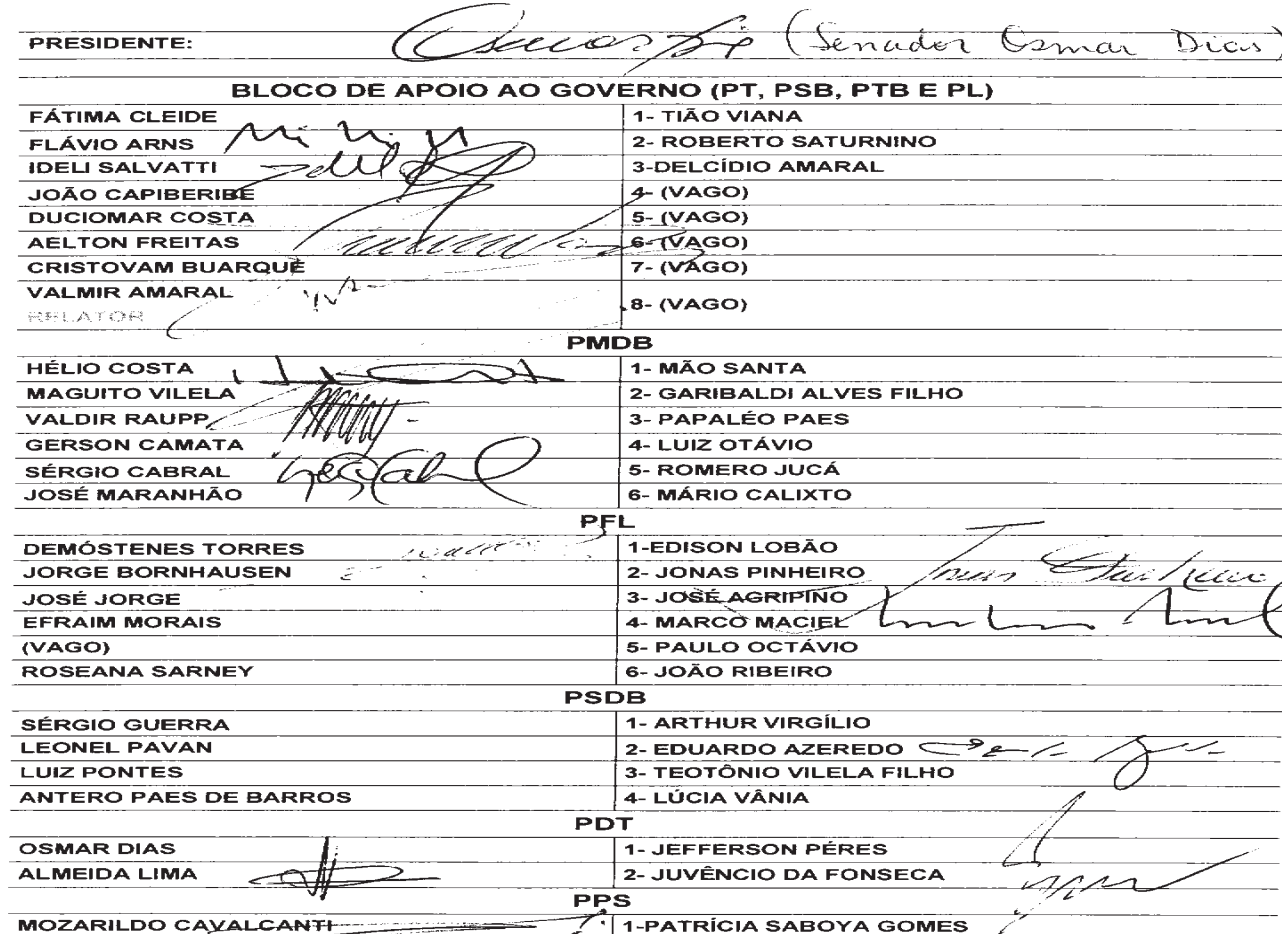 PRESIDENTE: (Senador Osmar Dias)
BLOCO DE APOIO AO GOVERNO (PT, PSB, PTB E PL)
FÁTIMA CLEIDE 1- TIÃO VIANA
FLÁVIO ARNS 2- ROBERTO SATURNINO
IDELI SALVATTI 3-DELCÍDIO AMARAL
JOÃO CAPIBERIBE 4- (VAGO)
DUCIOMAR COSTA 5- (VAGO)
AELTON FREITAS 6- (VAGO)
CRISTOVAM BUARQUE 7- (VAGO)
VALMIR AMARAL 8- (VAGO)
RELATOR
PMDB
HÉLIO COSTA 1- MÃO SANTA
MAGUITO VILELA 2- GARIBALDI ALVES FILHO
VALDIR RAUPP 3- PAPALÉO PAES
GERSON CAMATA 4- LUIZ OTÁVIO
SÉRGIO CABRAL 5- ROMERO JUCÁ
JOSÉ MARANHÃO 6- MÁRIO CALIXTO
PFL
DEMÓSTENES TORRES 1-EDISON LOBÃO
JORGE BORNHAUSEN 2- JONAS PINHEIRO
JOSÉ JORGE 3- JOSÉ AGRIPINO
EFRAIM MORAIS 4- MARCO MACIEL
(VAGO) 5- PAULO OCTÁVIO
ROSEANA SARNEY 6- JOÃO RIBEIRO
PSDB
SÉRGIO GUERRA 1- ARTHUR VIRGÍLIO
LEONEL PAVAN 2- EDUARDO AZEREDO
LUIZ PONTES 3- TEOTÔNIO VILELA FILHO
ANTERO PAES DE BARROS 4- LÚCIA VÂNIA
PDT
OSMAR DIAS 1- JEFFERSON PÉRES
ALMEIDA LIMA 2- JUVÊNCIO DA FONSECA
PPS
MOZARILDO CAVALCANTI 1-PATRÍCIA SABOYA GOMES